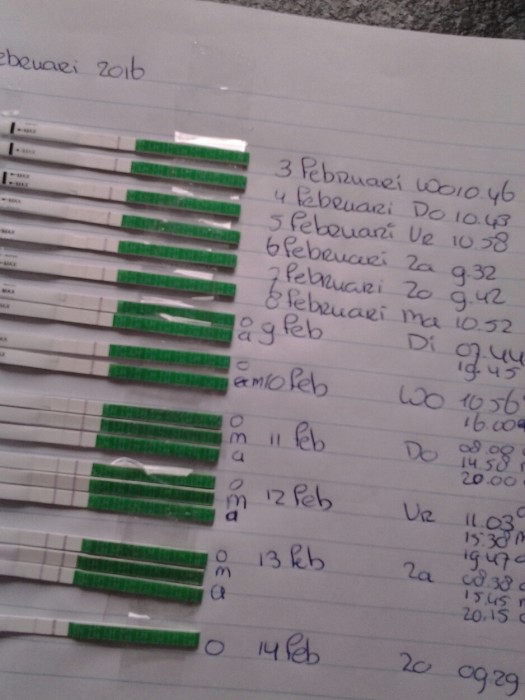 ebruari 2016
3 Februari Wo 10.46
4 Februari Do 10.43
5 Februari Vr 10.58
6 Februari Za 9.32
7 Februari Zo 9.42
8 Februari Ma 10.52
o
a 9 Feb Di 07.44
19.45
o
10 Feb Wo 10.56
16.00
o
m 11 Feb Do 08.00
a 14.58
20.00
o
m 12 Feb Vr 11.03
a 15.38
19.47
o
m 13 Feb Za 08.38
a 15.45
20.15
o 14 Feb Zo 09.29